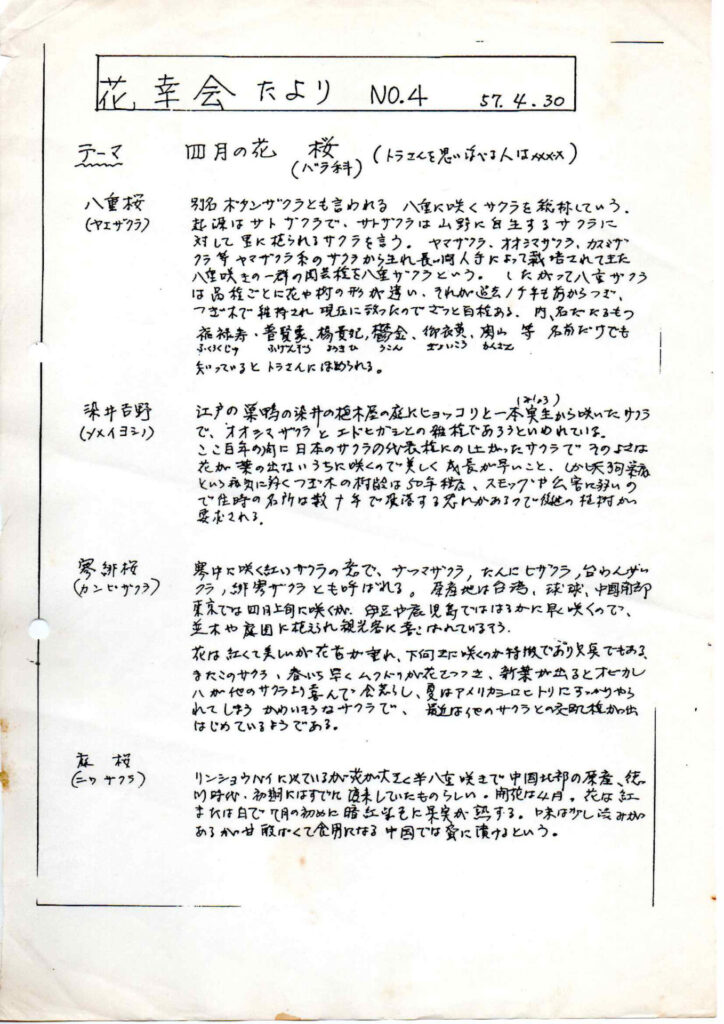 花幸会だより NO.4 57.4.30
テーマ 四月の花 桜 (トラさんを思い浮べる人はxxxx)
(バラ科)
八重桜 別名ボタンザクラとも言われる 八重に咲くサクラを総称していう.
(ヤエザクラ) 起源はサトザクラで、サトザクラは山野に自生するサクラに
対して里に植られるサクラを言う。ヤマザクラ、オオシマザクラ、カスミザ
クラ等ヤマザクラ系のサクラから生れ長い間人手によって栽培されて来た
八重咲きの一群の園芸種を八重ザクラという。したがって八重ザクラ
は品種ごとに花や樹の形が違い、それが過去ノ千年も前からつぎ、
つぎ木で維持され現在に致ったのでざっと百種ある。内、名だたるもつ
福禄寿・普賢象、楊貴妃、鬱金、御衣黄、関山 等 名前だけでも
ふくろくじゅ ふげんぞう ようきひ うこん ぎょいこう かんざん
知っているとトラさんにほめられる。
(みしょう)
染井吉野 江戸の巣鴨の染井の植木屋の庭にヒョッコリと一本実生から咲いたサクラ
(ソメイヨシノ) で、オオシマザクラとエドヒガンとの雑種であろうといわれている。
ここ百年の間に日本のサクラの代表種にのし上がったサクラでそのよさは
花が葉の出ないうちに咲くので美しく成長が早いこと、しかし天狗巣病
という病気に弱くつぎ木の樹齢は50年程度、スモッグや公害に弱いの
で往時の名所は数十年で衰落する恐れがあるので後世の植樹が
要求される.
寒緋桜 寒中に咲く紅いサクラの意で、サツマザクラ,たんにヒザクラ,台わんザ
(カンヒザクラ) クラ,緋寒ザクラとも呼ばれる。原産地は台湾、琉球、中国南部
東京では四月上旬に咲くが、伊豆や鹿児島でははるかに早く咲くので、
並木や庭園に植えられ観光客に喜こばれているそう.
花は紅くて美しいが花首が垂れ、下向きに咲くのが特徴であり欠点でもある.
またこのサクラ、春いち早くムクドリが花をつつき、新葉が出るとオビカレ
ハが他のサクラより喜んで食荒らし、夏はアメリカシロヒトリにすっかりやら
れてしまう かわいそうなサクラで、最近は他のサクラとの交配種が出
はじめているようである。
麻桜 リンショウバイに似ているが花が大きく半八重咲きで中国北部の原産、徳
(ニワザクラ) 川時代・初期にはすでに渡来していたものらしい。開花は4月。花は紅
または白で7月の初めに暗紅学そに果実が熟する。味は少し渋みが
あるが甘酸ぱくて食用になる 中国では蜜に漬けるという。